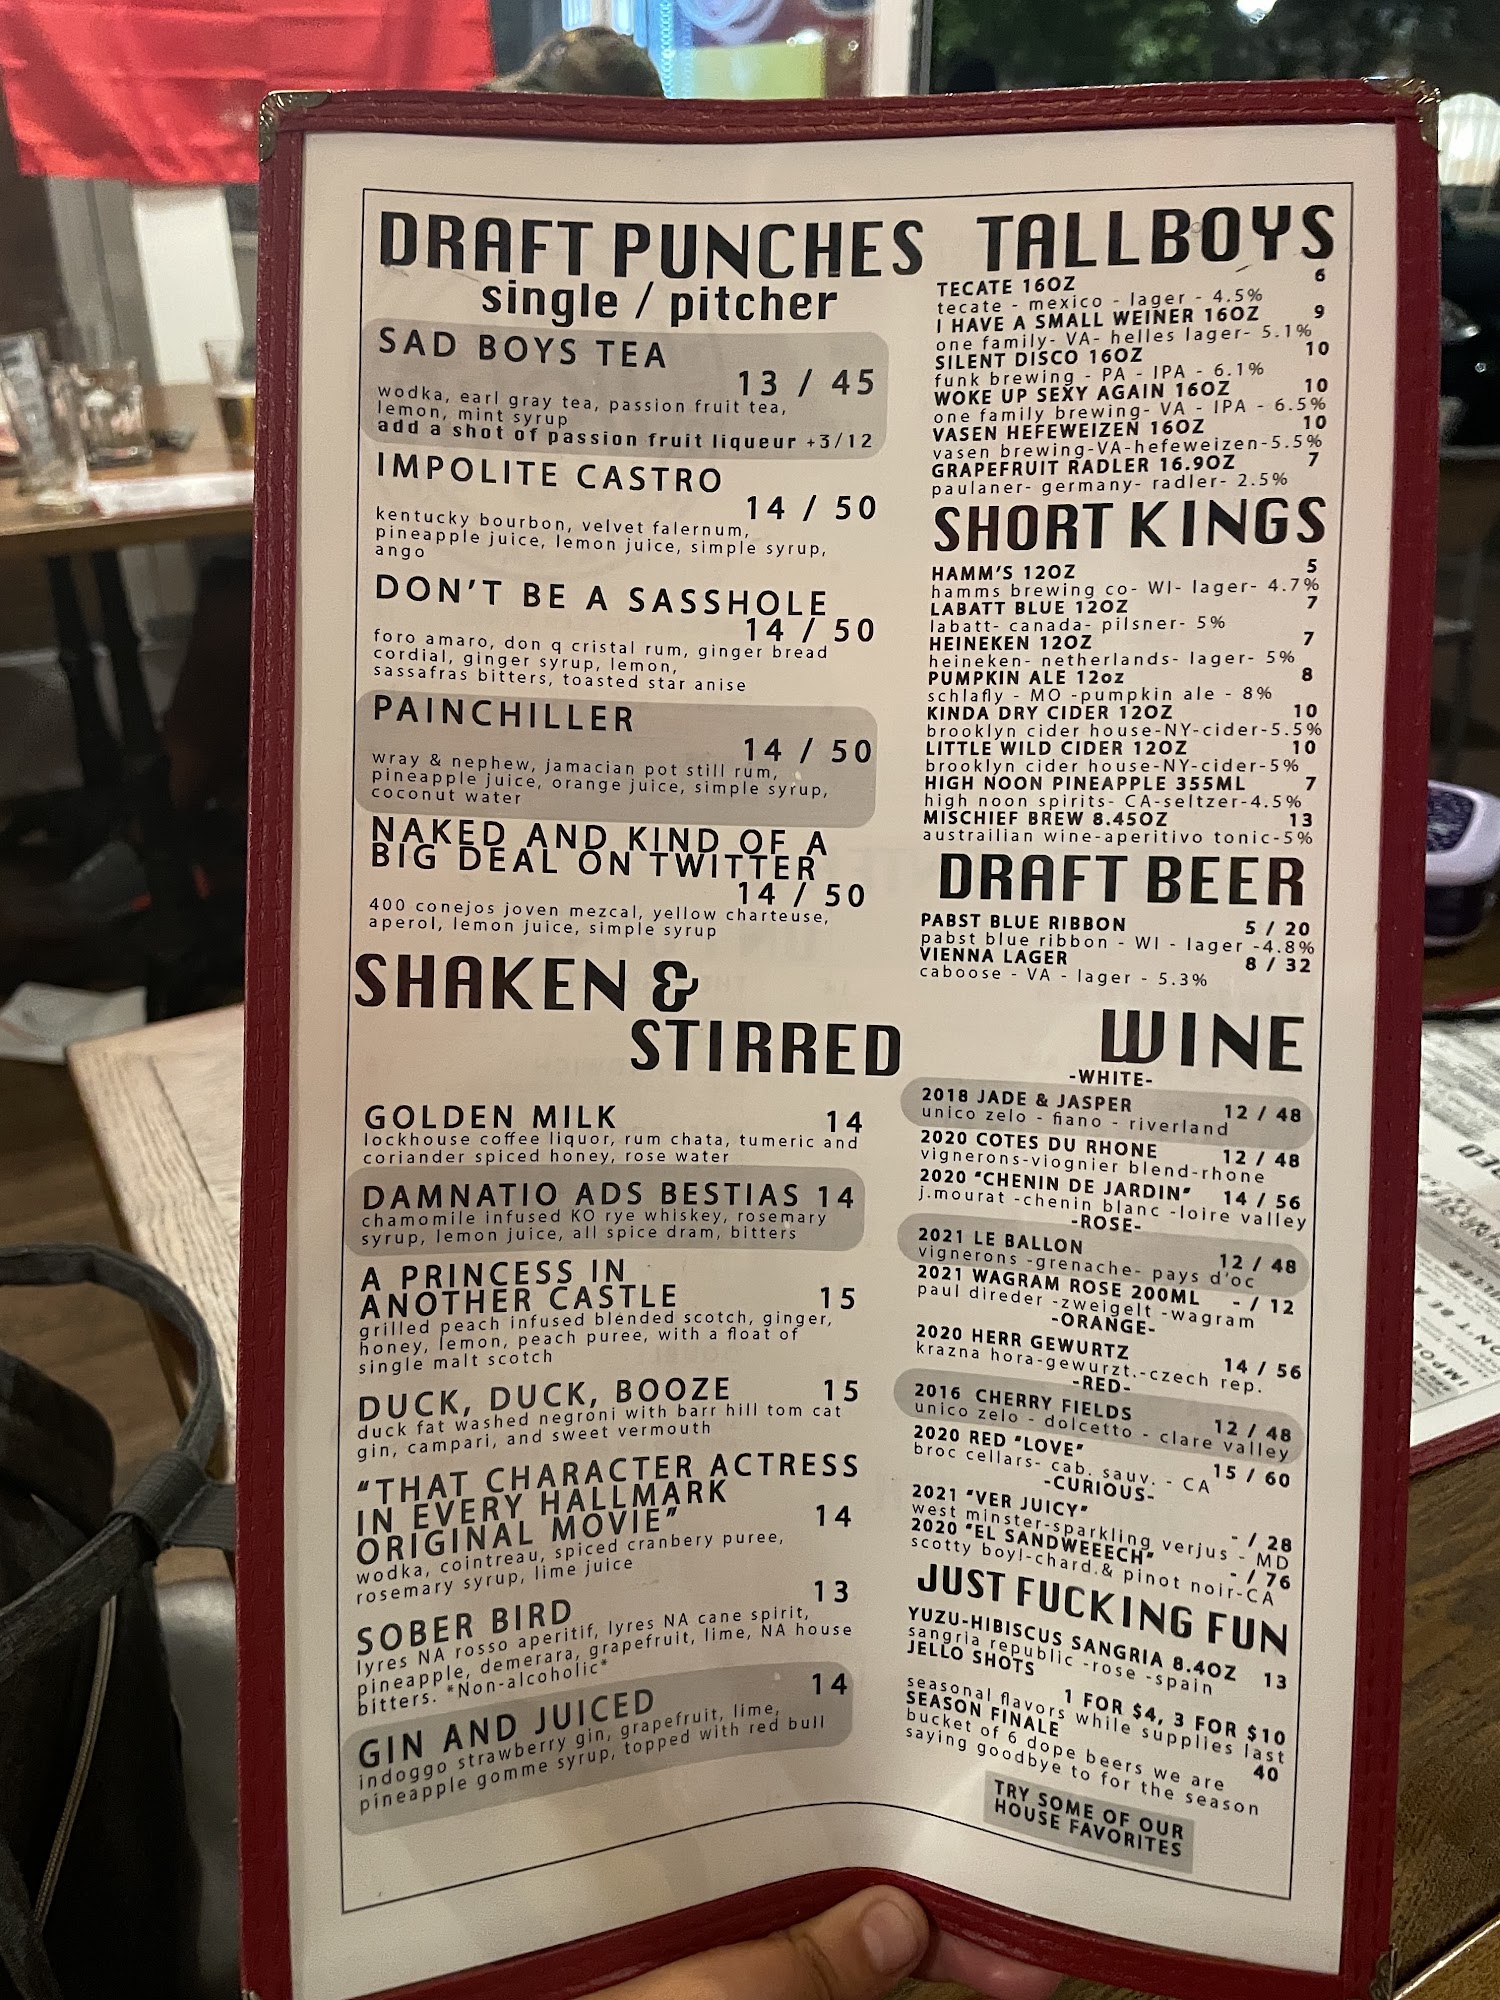 DRAFT PUNCHES
single / pitcher
SAD BOYS TEA
13 / 45
wodka, earl gray tea, passion fruit tea,
lemon, mint syrup
add a shot of passion fruit liqueur +3/12
IMPOLITE CASTRO
14 / 50
kentucky bourbon, velvet falernum,
pineapple juice, lemon juice, simple syrup,
ango
DON'T BE A SASSHOLE
14 / 50
foro amaro, don q cristal rum, ginger bread
cordial, ginger syrup, lemon,
sassafras bitters, toasted star anise
PAINCHILLER
14 / 50
wray & nephew, jamacian pot still rum,
pineapple juice, orange juice, simple syrup,
coconut water
NAKED AND KIND OF A
BIG DEAL ON TWITTER
14 / 50
400 conejos joven mezcal, yellow charteuse,
aperol, lemon juice, simple syrup
SHAKEN &
STIRRED
GOLDEN MILK 14
lockhouse coffee liquor, rum chata, tumeric and
coriander spiced honey, rose water
DAMNATIO ADS BESTIAS 14
chamomile infused KO rye whiskey, rosemary
syrup, lemon juice, all spice dram, bitters
A PRINCESS IN
ANOTHER CASTLE 15
grilled peach infused blended scotch, ginger,
honey, lemon, peach puree, with a float of
single malt scotch
DUCK, DUCK, BOOZE 15
duck fat washed negroni with barr hill tom cat
gin, campari, and sweet vermouth
"THAT CHARACTER ACTRESS
IN EVERY HALLMARK
ORIGINAL MOVIE" 14
wodka, cointreau, spiced cranbery puree,
rosemary syrup, lime juice
SOBER BIRD 13
lyres NA rosso aperitif, lyres NA cane spirit,
pineapple, demerara, grapefruit, lime, NA house
bitters. *Non-alcoholic*
GIN AND JUICED 14
indoggo strawberry gin, grapefruit, lime,
pineapple gomme syrup, topped with red bull
TALLBOYS
TECATE 16OZ 6
tecate - mexico - lager - 4.5%
I HAVE A SMALL WEINER 16OZ 9
one family- VA- helles lager- 5.1%
SILENT DISCO 16OZ 10
funk brewing - PA - IPA - 6.1%
WOKE UP SEXY AGAIN 16OZ 10
one family brewing- VA - IPA - 6.5%
VASEN HEFEWEIZEN 16OZ 10
vasen brewing-VA-hefeweizen-5.5%
GRAPEFRUIT RADLER 16.9OZ 7
paulaner- germany- radler- 2.5%
SHORT KINGS
HAMM'S 12OZ 5
hamms brewing co- WI- lager- 4.7%
LABATT BLUE 12OZ 7
labatt- canada- pilsner- 5%
HEINEKEN 12OZ 7
heineken- netherlands- lager- 5%
PUMPKIN ALE 12oz 8
schlafly - MO -pumpkin ale - 8%
KINDA DRY CIDER 12OZ 10
brooklyn cider house-NY-cider-5.5%
LITTLE WILD CIDER 12OZ 10
brooklyn cider house-NY-cider-5%
HIGH NOON PINEAPPLE 355ML 7
high noon spirits- CA-seltzer-4.5%
MISCHIEF BREW 8.45OZ 13
austrailian wine-aperitivo tonic-5%
DRAFT BEER
PABST BLUE RIBBON 5 / 20
pabst blue ribbon - WI - lager -4.8%
VIENNA LAGER 8 / 32
caboose - VA - lager - 5.3%
WINE
-WHITE-
2018 JADE & JASPER 12 / 48
unico zelo - fiano - riverland
2020 COTES DU RHONE 12 / 48
vignerons-viognier blend-rhone
2020 "CHENIN DE JARDIN" 14 / 56
j.mourat -chenin blanc -loire valley
-ROSE-
2021 LE BALLON 12 / 48
vignerons -grenache- pays d'oc
2021 WAGRAM ROSE 200ML - / 12
paul direder -zweigelt -wagram
-ORANGE-
2020 HERR GEWURTZ 14 / 56
krazna hora-gewurzt.-czech rep.
-RED-
2016 CHERRY FIELDS 12 / 48
unico zelo - dolcetto - clare valley
2020 RED "LOVE" 15 / 60
broc cellars- cab. sauv. - CA
-CURIOUS-
2021 "VER JUICY" - / 28
west minster-sparkling verjus - MD
2020 "EL SANDWEEECH" - / 76
scotty boy!-chard.& pinot noir-CA
JUST FUCKING FUN
YUZU-HIBISCUS SANGRIA 8.4OZ 13
sangria republic -rose -spain
JELLO SHOTS
1 FOR $4, 3 FOR $10
seasonal flavors while supplies last
SEASON FINALE 40
bucket of 6 dope beers we are
saying goodbye to for the season
TRY SOME OF OUR
HOUSE FAVORITES